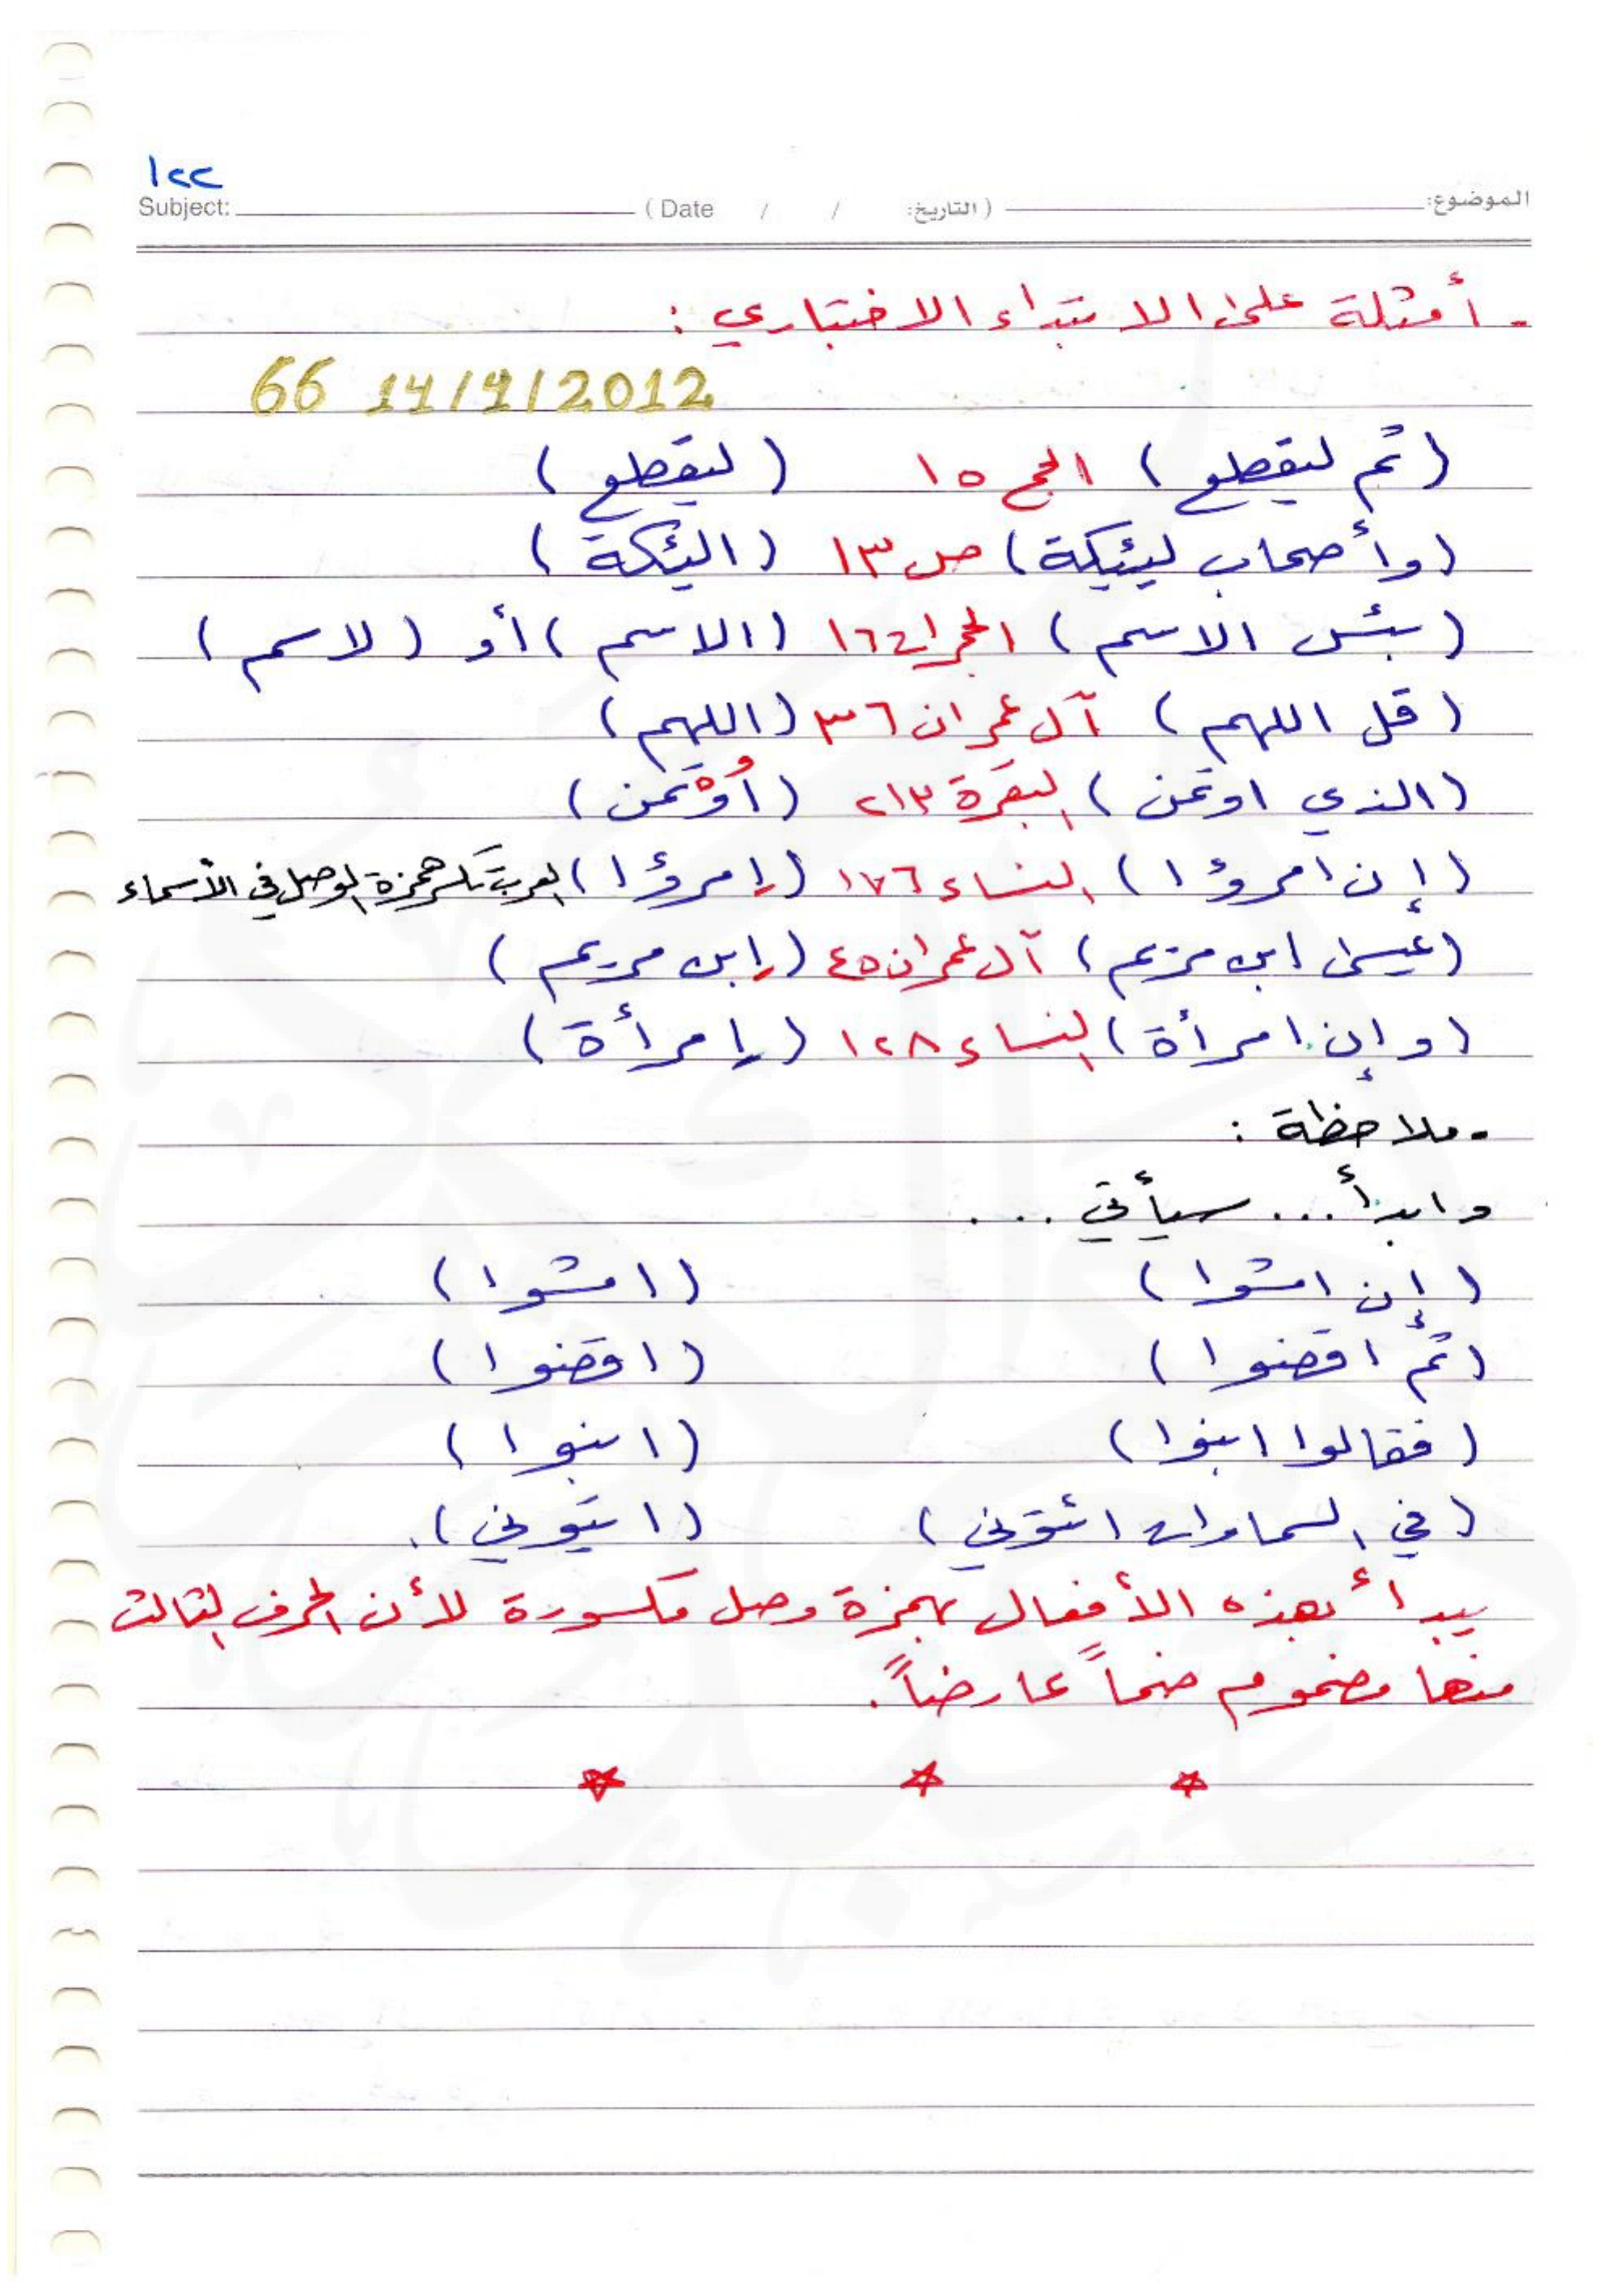 ١٢٢
Subject: ( Date / / التاريخ: ) الموضوع:
- أمثلة على الابتداء الاختباري :
66 14/9/2012
( ثم ليقطع ) الحج ١٥ ( ليقطع )
( وأصحاب لئيكة ) ص ١٣ ( الئيكة )
( بئس الاسم ) ( الاسم ) أو ( لاسم )
( قل اللهم ) آل عمران ٣٦ ( اللهم )
( الذي اوتمن ) البقرة ٢١٣ ( أُوْتمن )
( إن امرؤا ) النساء ١٧٦ ( إمرؤا ) العرب تكسر همزة الوصل في الأسماء
( عيسى ابن مريم ) آل عمران ٤٥ ( إبن مريم )
( وإن امرأة ) النساء ١٢٨ ( إمرأة )
- ملاحظة :
وابدأ ... سيأتي ...
( إن امشوا ) ( امشوا )
( ثم اقضوا ) ( اقضوا )
( فقالوا ابنوا ) ( ابنوا )
( في السماوات ائتوني ) ( ايتوني ).
يبدأ بهذه الأفعال بهمزة وصل مكسورة لأن الحرف الثالث
منها مضموم ضماً عارضاً.